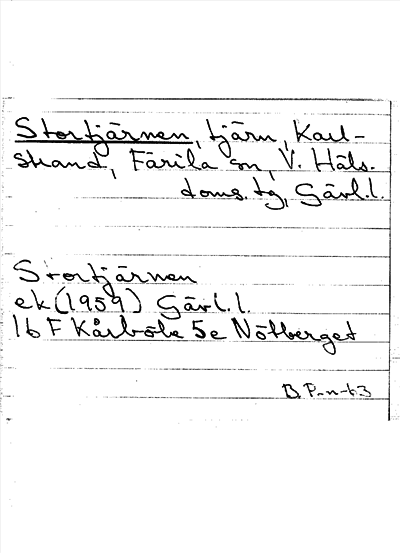 Stortjärnen, tjärn, Karl-
strand, Färila sn, V. Häls.
doms. tg, Gävl.l.
Stortjärnen
ek (1959) Gävl.l.
16 F Kårböle 5e Nötberget
B.